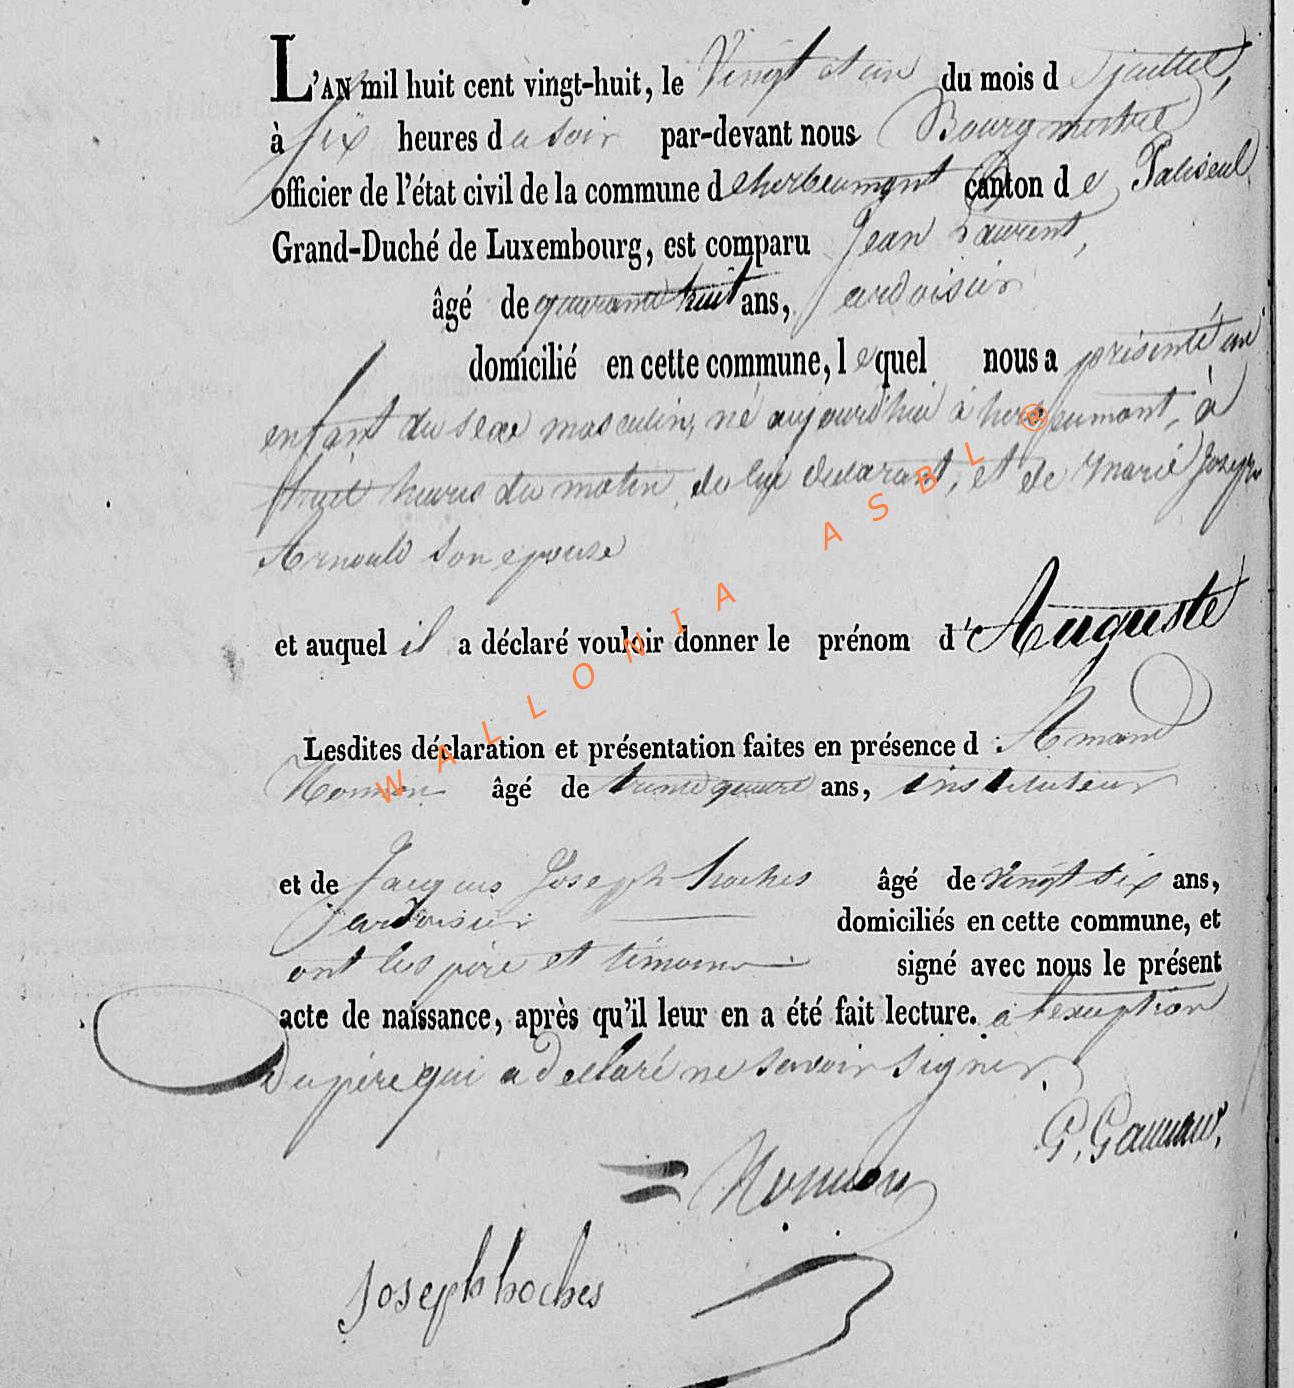 L'AN mil huit cent vingt-huit, le Vingt et un du mois de juillet,
à six heures du soir par-devant nous Bourgmestre
officier de l'état civil de la commune d'herbeumont canton de Paliseul
Grand-Duché de Luxembourg, est comparu Jean Laurent,
âgé de quarante huit ans, ardoisier
domicilié en cette commune, lequel nous a présenté un
enfant du sexe masculin, né aujourd'hui à herbeumont, à
huit heures du matin, de lui déclarant, et de Marie Joseph
Arnould son épouse
et auquel il a déclaré vouloir donner le prénom d'Auguste
Lesdites déclaration et présentation faites en présence d'Amand
âgé de trente quatre ans, instituteur
et de Jacques Joseph hoches âgé de vingt six ans,
ardoisier domiciliés en cette commune, et
ont les père et témoins signé avec nous le présent
acte de naissance, après qu'il leur en a été fait lecture. à l'exception
Du père qui a déclaré ne savoir signer.
G.
Joseph hoches
WALLONIA ASBL ®